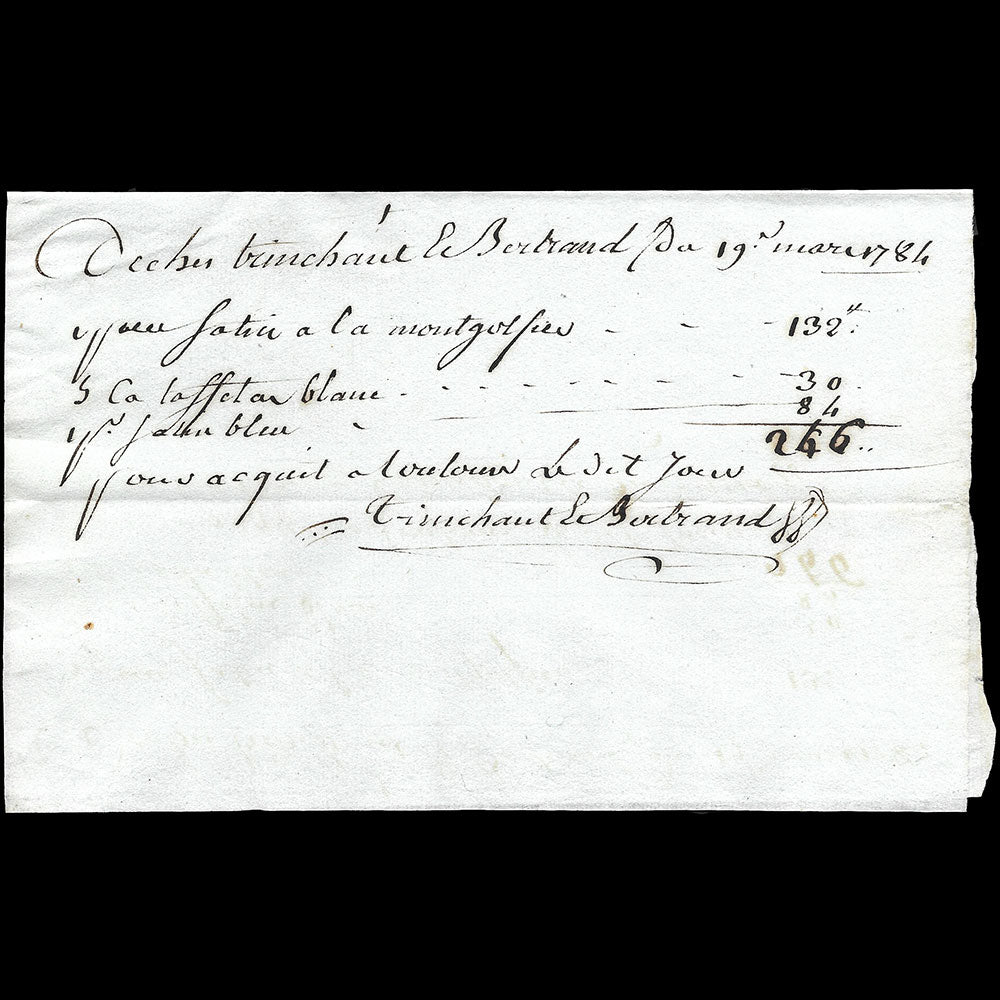 De ches trinchant & Bertrand Du 19.r mars 1784
satin a la montgolfier - - - 132
5 Ca taffetas blanc - - - - - - - 30
84
satin bleu
246
pour acquit a toulouse Le dit Jour
trinchant & Bertrand